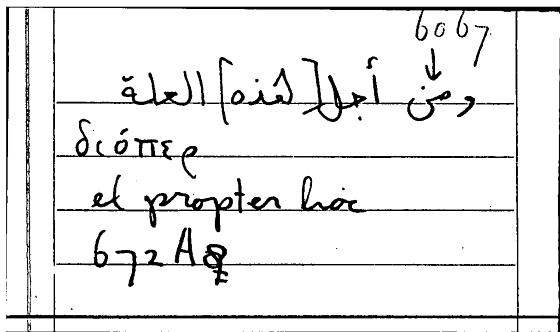 6067
ومن أجل [هذه] العلة
διόπερ
et propter hoc
672 A